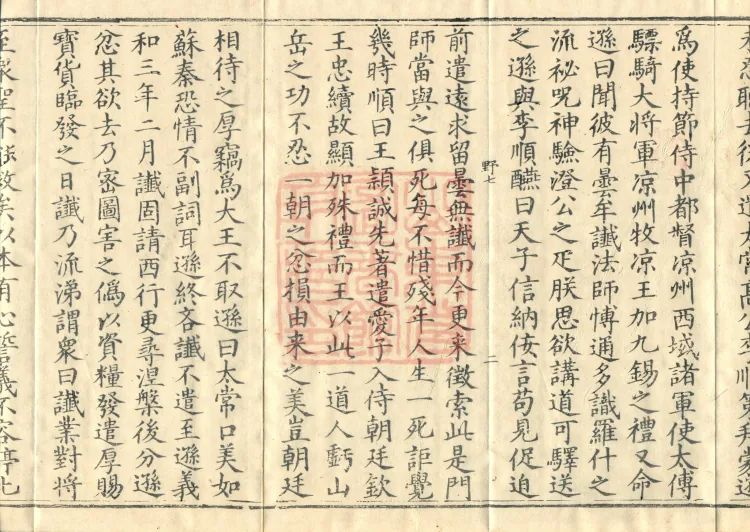 為使持節侍中都督凉州西域諸軍使太傅
驃騎大將軍凉州牧凉王加九錫之禮又命
遜曰聞彼有曇牟讖法師愽通多識羅什之
流祕呪神驗澄公之疋朕思欲講道可驛送
之遜與李順醼曰天子信納侫言苟見促迫
野七 二
前遣遠求留曇無讖而今更来徵索此是門
師當與之俱死每不惜殘年人生一死詎覺
幾時順曰王穎誠先著遣愛子入侍朝廷欽
王忠續故顯加殊禮而王以此一道人虧山
岳之功不忍一朝之忿損由来之美豈朝廷
相待之厚竊為大王不取遜曰太常口美如
蘇秦恐情不副詞耳遜終吝讖不遣至遜義
和三年二月讖固請西行更尋涅槃後分遜
忿其欲去乃密圖害之偽以資糧發遣厚賜
寶貨臨發之日讖乃流涕謂衆曰讖業對將
至衆聖不能救矣以本有心誓義不容停